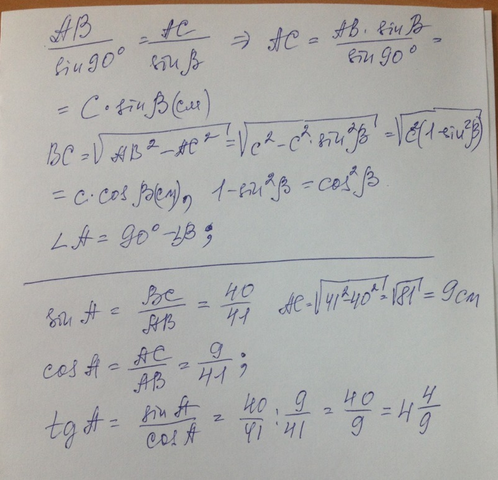 AB/sin90° = AC/sinβ ⇒ AC = AB·sinβ/sin90° =
= C·sinβ(см)
BC=√(AB²−AC²)=√(c²−c²·sin²β)=√(c²(1−sin²β))
= c·cosβ(см), 1−sin²β = cos²β
∠A = 90°−∠B;
sin A = BC/AB = 40/41 AC=√(41²−40²)=√81 = 9см
cos A = AC/AB = 9/41;
tg A = sin A/cos A = 40/41 : 9/41 = 40/9 = 4 4/9